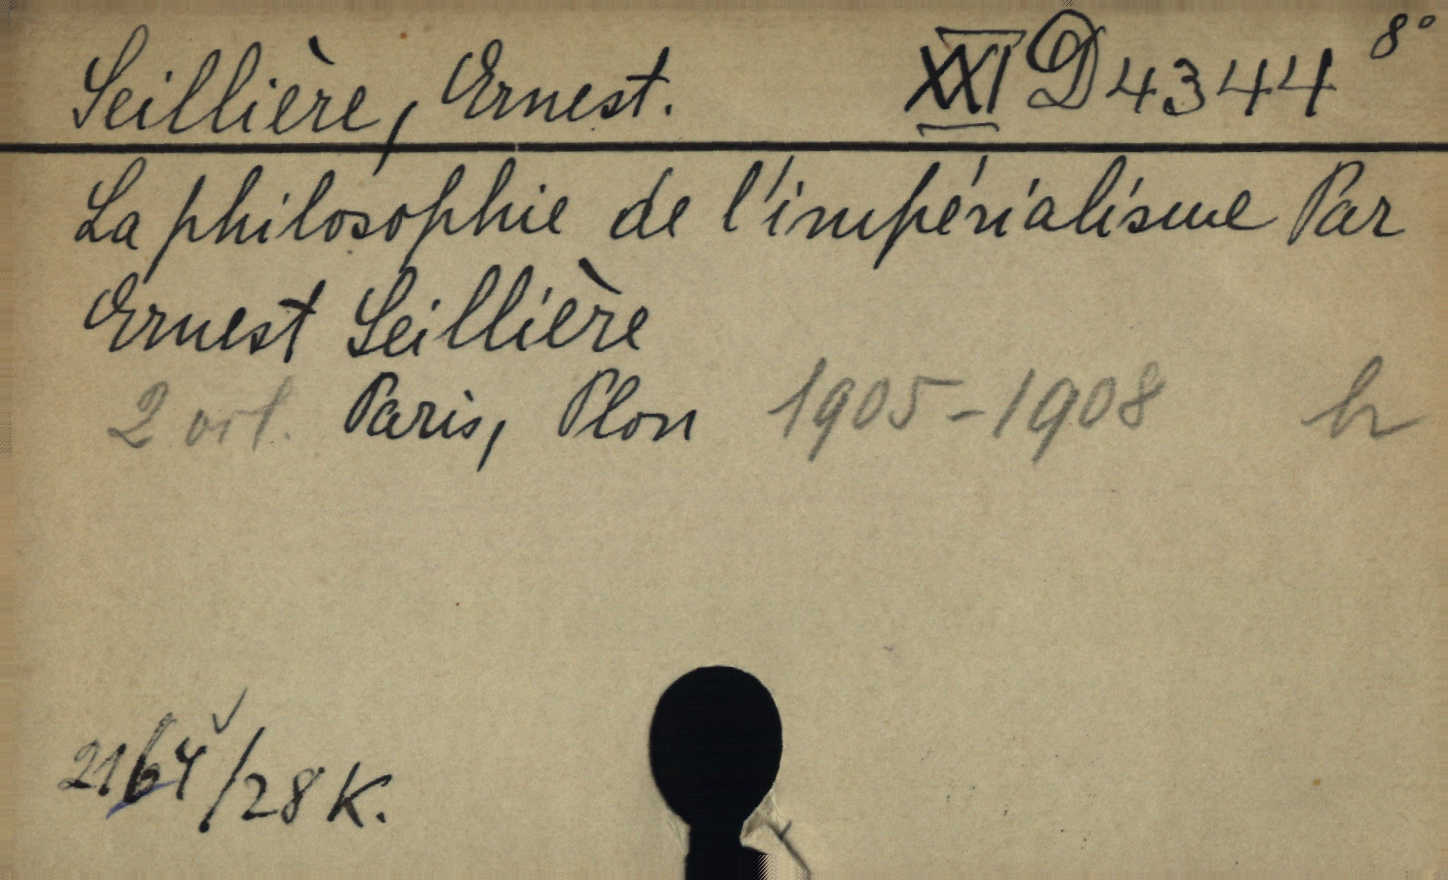 Seillière, Ernest. XXI D 4344 8°
La philosophie de l'impérialisme Par
Ernest Seillière
2 vol. Paris, Plon 1905-1908 h
2164/28 K.